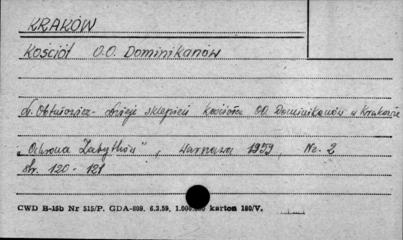 KRAKÓW
Kościół O.O. Dominikanów
Dzieje sklepień kościoła OO Dominikanów w Krakowie
"Ochrona Zabytków", Warszawa 1959, Nr. 2
str. 120-121
CWD B-15b Nr 515/P. GDA-809. 6.3.59. karton 180/V.